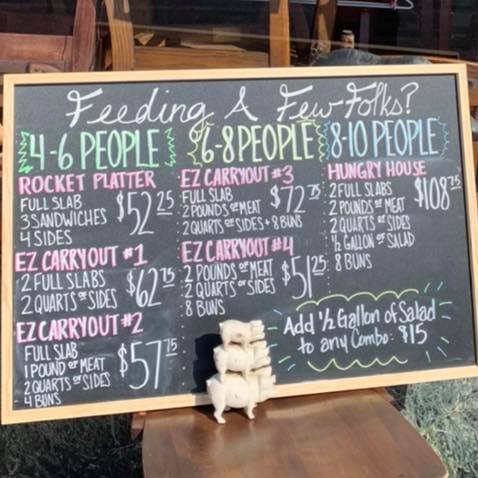 Feeding A Few Folks?
4-6 PEOPLE
ROCKET PLATTER
FULL SLAB
3 SANDWICHES
4 SIDES
$52.25
EZ CARRYOUT #1
2 FULL SLABS
2 QUARTS OF SIDES
$62.75
EZ CARRYOUT #2
FULL SLAB
1 POUND OF MEAT
2 QUARTS OF SIDES
4 BUNS
$57.75
6-8 PEOPLE
EZ CARRYOUT #3
FULL SLAB
2 POUNDS OF MEAT
2 QUARTS OF SIDES + 8 BUNS
$72.75
EZ CARRYOUT #4
2 POUNDS OF MEAT
2 QUARTS OF SIDES
8 BUNS
$51.25
8-10 PEOPLE
HUNGRY HOUSE
2 FULL SLABS
2 POUNDS OF MEAT
2 QUARTS OF SIDES
1/2 GALLON OF SALAD
8 BUNS
$108.75
Add 1/2 Gallon of Salad
to any Combo: $15